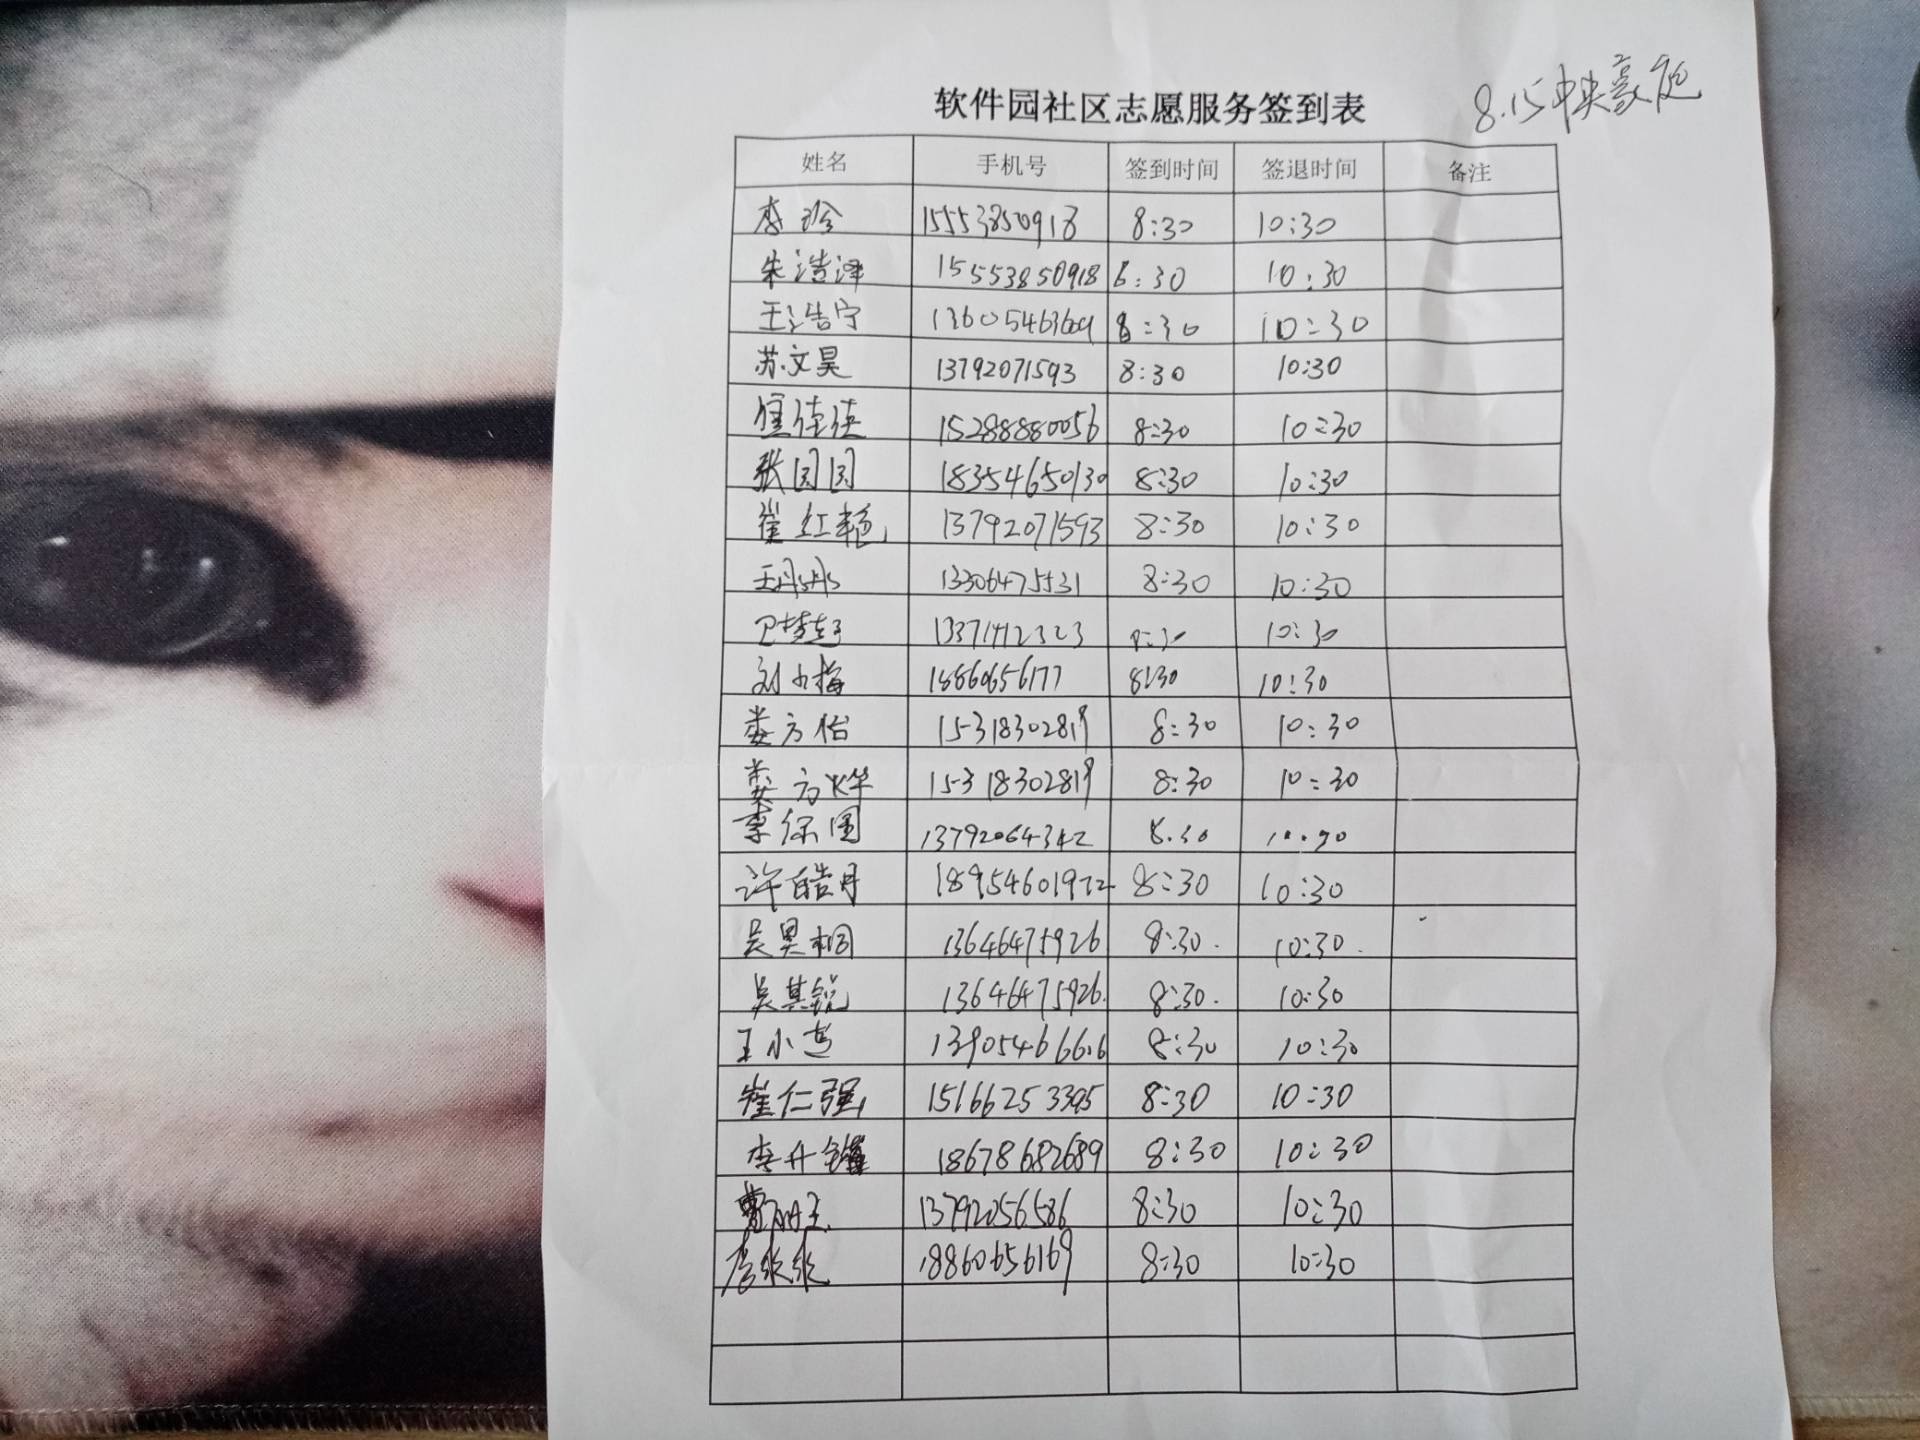 8.15中央豪庭
软件园社区志愿服务签到表
姓名 手机号 签到时间 签退时间 备注
李珍 15553850918 8:30 10:30
朱浩泽 15553850918 8:30 10:30
王浩宁 13605463609 8:30 10:30
苏文昊 13792071593 8:30 10:30
15288880056 8:30 10:30
张园园 18354650130 8:30 10:30
崔红艳 13792071593 8:30 10:30
王丹丹 13306475531 8:30 10:30
13371412323 8:30 10:30
刘小梅 18860656177 8:30 10:30
娄方怡 15318302819 8:30 10:30
娄方烨 15318302819 8:30 10:30
李保国 13792064342 8.30 10.30
许皓月 18954601972 8:30 10:30
吴昊桐 13646475926 8:30. 10:30.
吴其锐 13646475926. 8:30. 10:30
王小燕 13905466616 8:30 10:30
崔仁强 15166253395 8:30 10:30
李升 18678682689 8:30 10:30
13792056586 8:30 10:30
18860656169 8:30 10:30